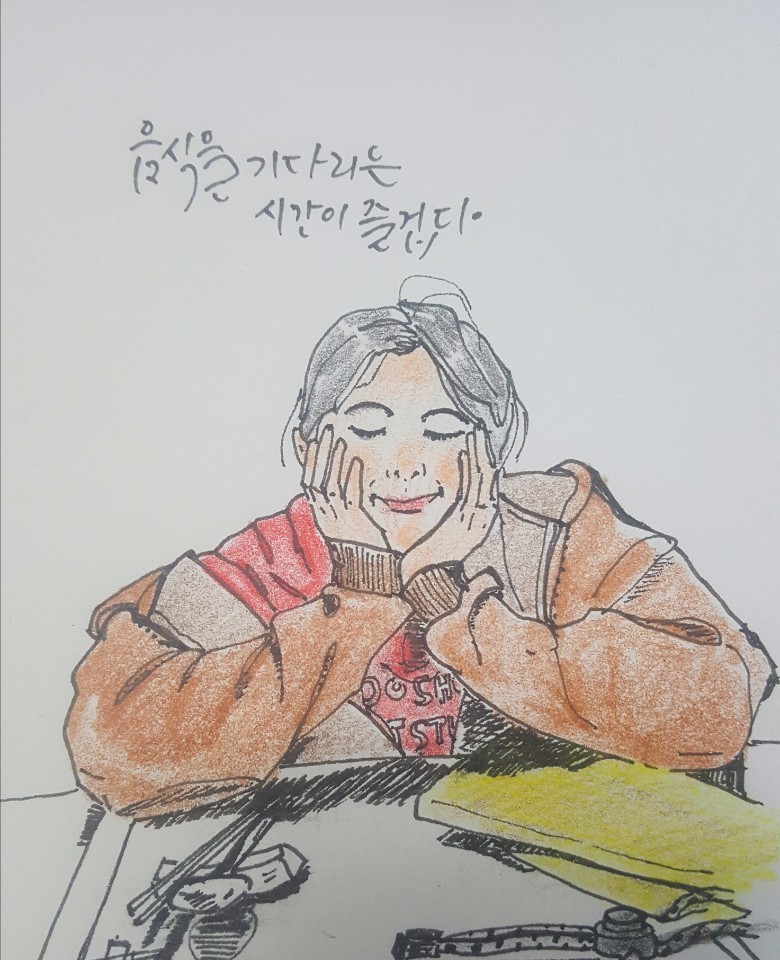 음식을 기다리는
시간이 즐겁다.
OOSH
TSTU